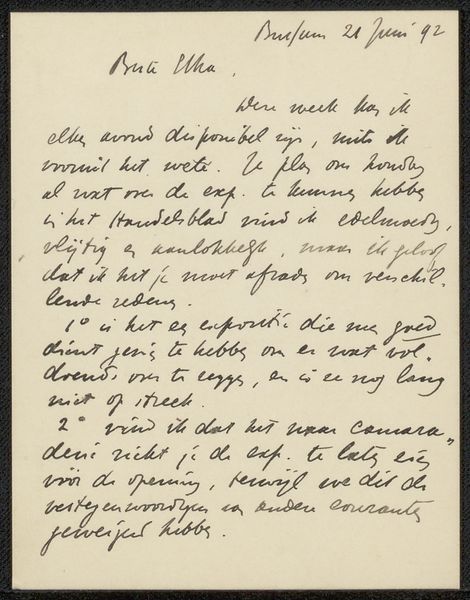 Bussum 21 Juni 92
Beste Elka,
Deze week kan ik
elken avond disponibel zijn, mits ik
vooruit het wete. Je plan om honderd
al wat over de exp. te kunnen hebben
in het Handelsblad vind ik edelmoedig,
vlijtig en aanlokkelijk, maar ik geloof
dat ik het je moet afraden om verschil-
lende redenen.
1° is het een expositie die men goed
dient gezien te hebben om er wat vol-
doends over te zeggen, en is ze nog lang
niet op streek.
2° vind ik dat het naar camara-
derie riekt je de exp. te laten zien
vóór de opening, terwijl we dit de
vertegenwoordigers van andere couranten
geweigerd hebben.